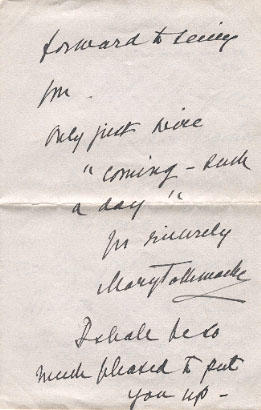 forward to seeing
you.
Only just wire
"coming - such
a day"
Yrs sincerely
Mary Tollemache
I shall be so
much pleased to put
you up -